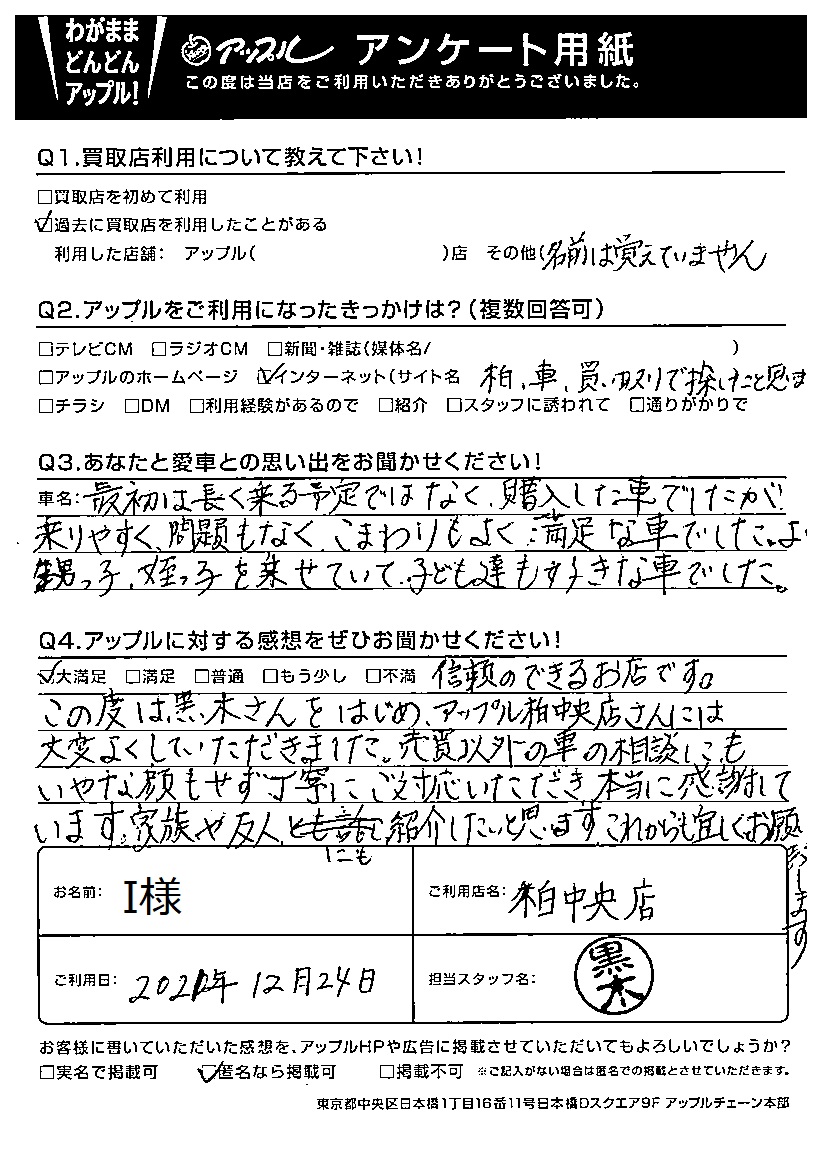 わがまま
どんどん
アップル!
アップル アンケート用紙
この度は当店をご利用いただきありがとうございました。
Q1.買取店利用について教えて下さい!
□買取店を初めて利用
☑過去に買取店を利用したことがある
利用した店舗: アップル( )店 その他(名前は覚えていません
Q2.アップルをご利用になったきっかけは?(複数回答可)
□テレビCM □ラジオCM □新聞・雑誌(媒体名/ )
□アップルのホームページ ☑インターネット(サイト名 柏、車、買い取りで探したと思います
□チラシ □DM □利用経験があるので □紹介 □スタッフに誘われて □通りがかりで
Q3.あなたと愛車との思い出をお聞かせください!
車名: 最初は長く乗る予定ではなく、購入した車でしたが
乗りやすく、問題もなく、こまわりもよく、満足な車でした。よく
甥っ子、姪っ子を乗せていて、子ども達も大好きな車でした。
Q4.アップルに対する感想をぜひお聞かせください!
☑大満足 □満足 □普通 □もう少し □不満 信頼のできるお店です。
この度は黒木さんをはじめ、アップル柏中央店さんには
大変よくしていただきました。売買以外の車の相談にも
いやな顔もせず丁寧にご対応いただき、本当に感謝して
います。家族や友人にも紹介したいと思います。これからも宜しくお願い致します
お名前: I様
ご利用店名: 柏中央店
ご利用日: 2021年 12月24日
担当スタッフ名: 黒木
お客様に書いていただいた感想を、アップルHPや広告に掲載させていただいてもよろしいでしょうか?
□実名で掲載可 ☑匿名なら掲載可 □掲載不可 ※ご記入がない場合は匿名での掲載とさせていただきます。
東京都中央区日本橋1丁目16番11号日本橋Dスクエア9F アップルチェーン本部